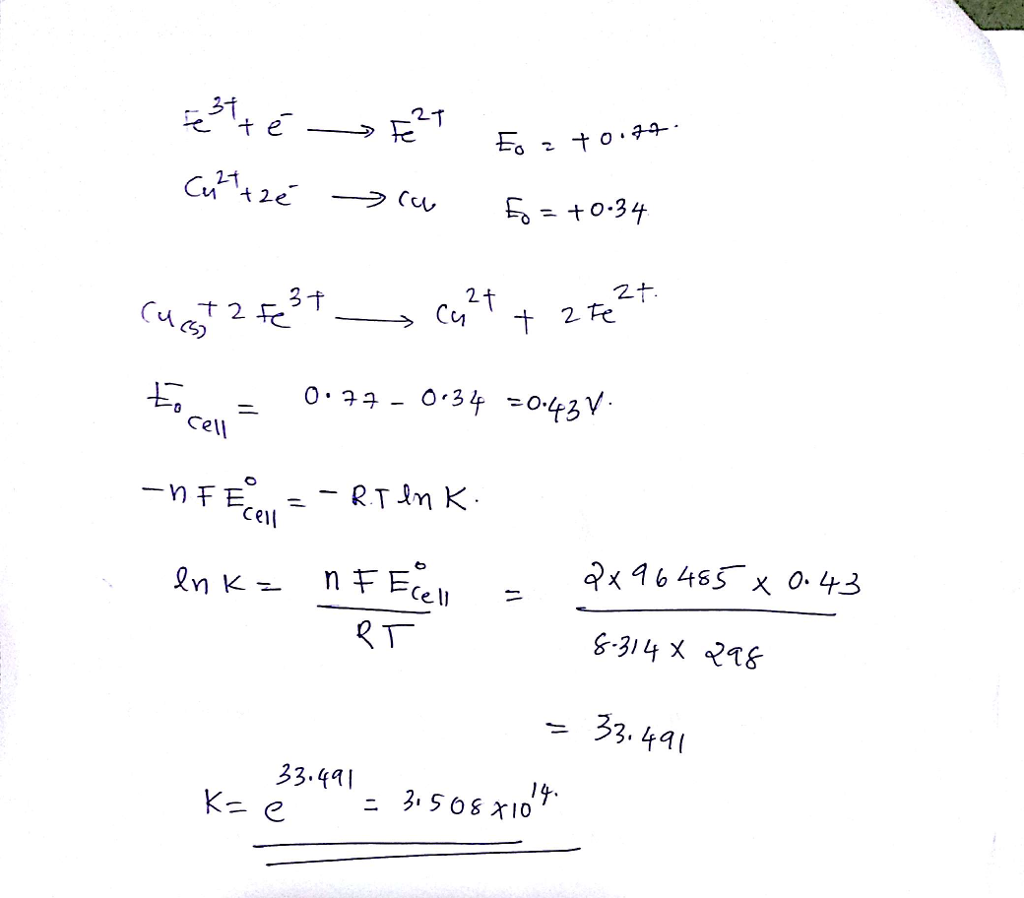 Fe³⁺ + e⁻ → Fe²⁺ E₀ = +0.77.
Cu²⁺ + 2e⁻ → Cu E₀ = +0.34
Cu(s) + 2Fe³⁺ → Cu²⁺ + 2Fe²⁺.
E₀ cell = 0.77 - 0.34 = 0.43V.
-nFE°cell = -R.T ln K.
ln K = nFE°cell / RT = 2×96485×0.43 / 8.314×298
= 33.491
K = e^33.491 = 3.508×10¹⁴.